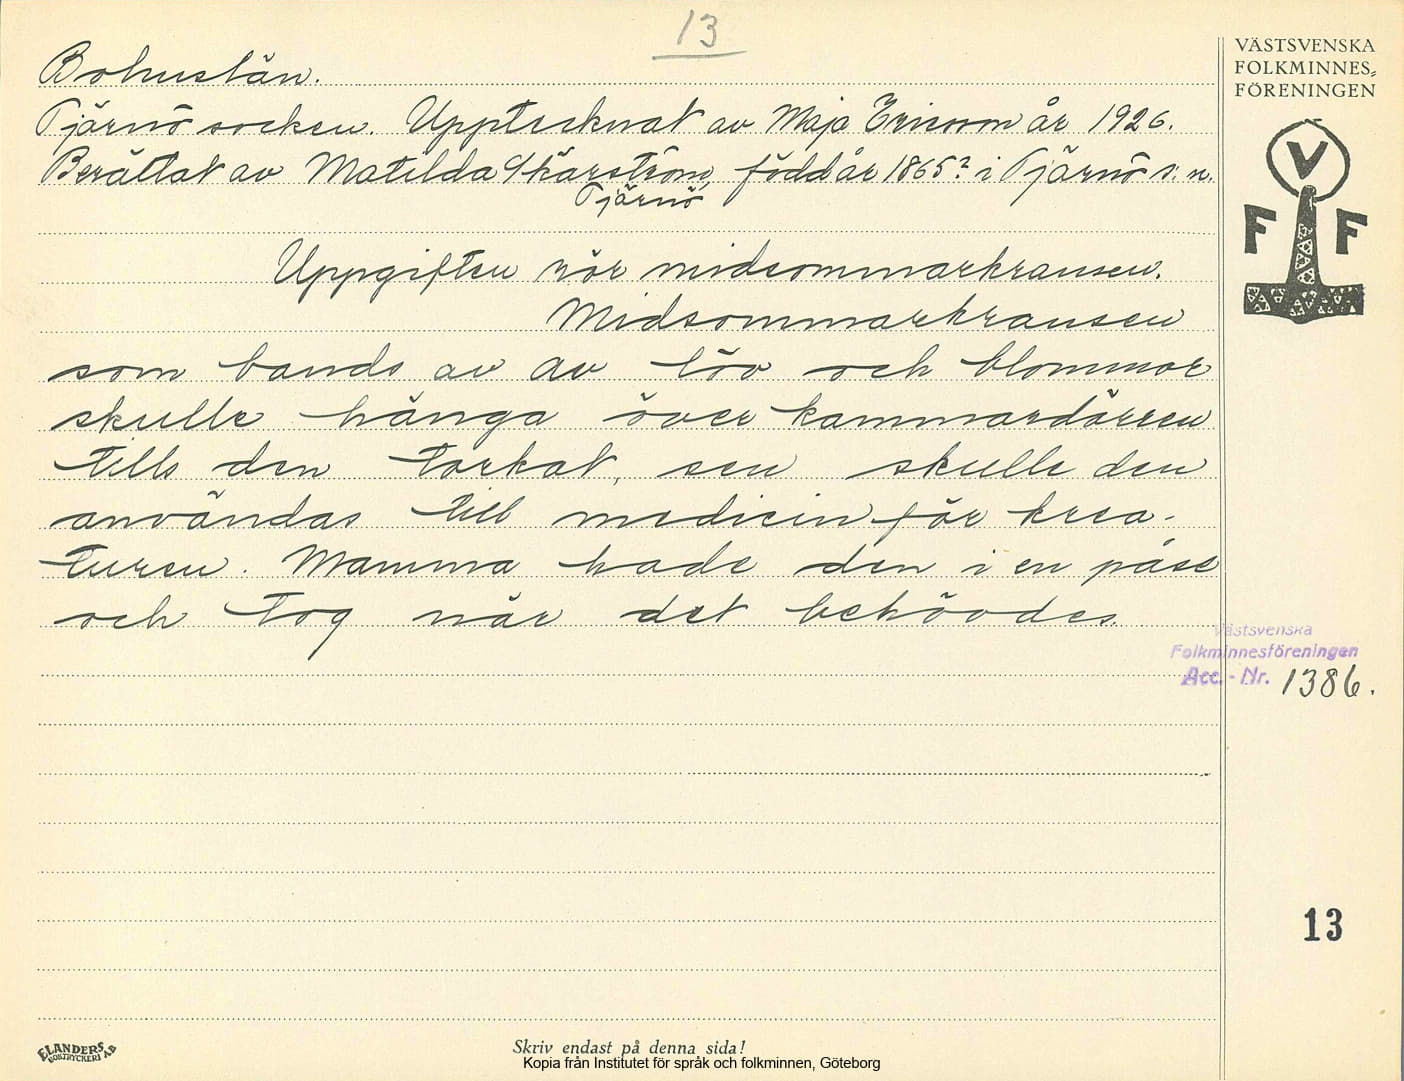 13
Bohuslän.
Tjärnö socken. Upptecknat av Maja Ericson år 1926.
Berättat av Matilda Skärström, född år 1865? i Tjärnö s:n.
Tjärnö
Uppgiften rör midsommarkransen.
Midsommarkransen
som bands av av löv och blommor
skulle hänga över kammardörren
tills den torkat, sen skulle den
användas till medicin för krea-
turen. Mamma hade den i en påse
och tog när det behövdes.
VÄSTSVENSKA
FOLKMINNES-
FÖRENINGEN
V
F F
Västsvenska
Folkminnesföreningen
Acc. - Nr. 1386.
13
ELANDERS
BOKTRYCKERI AB
Skriv endast på denna sida!
Kopia från Institutet för språk och folkminnen, Göteborg